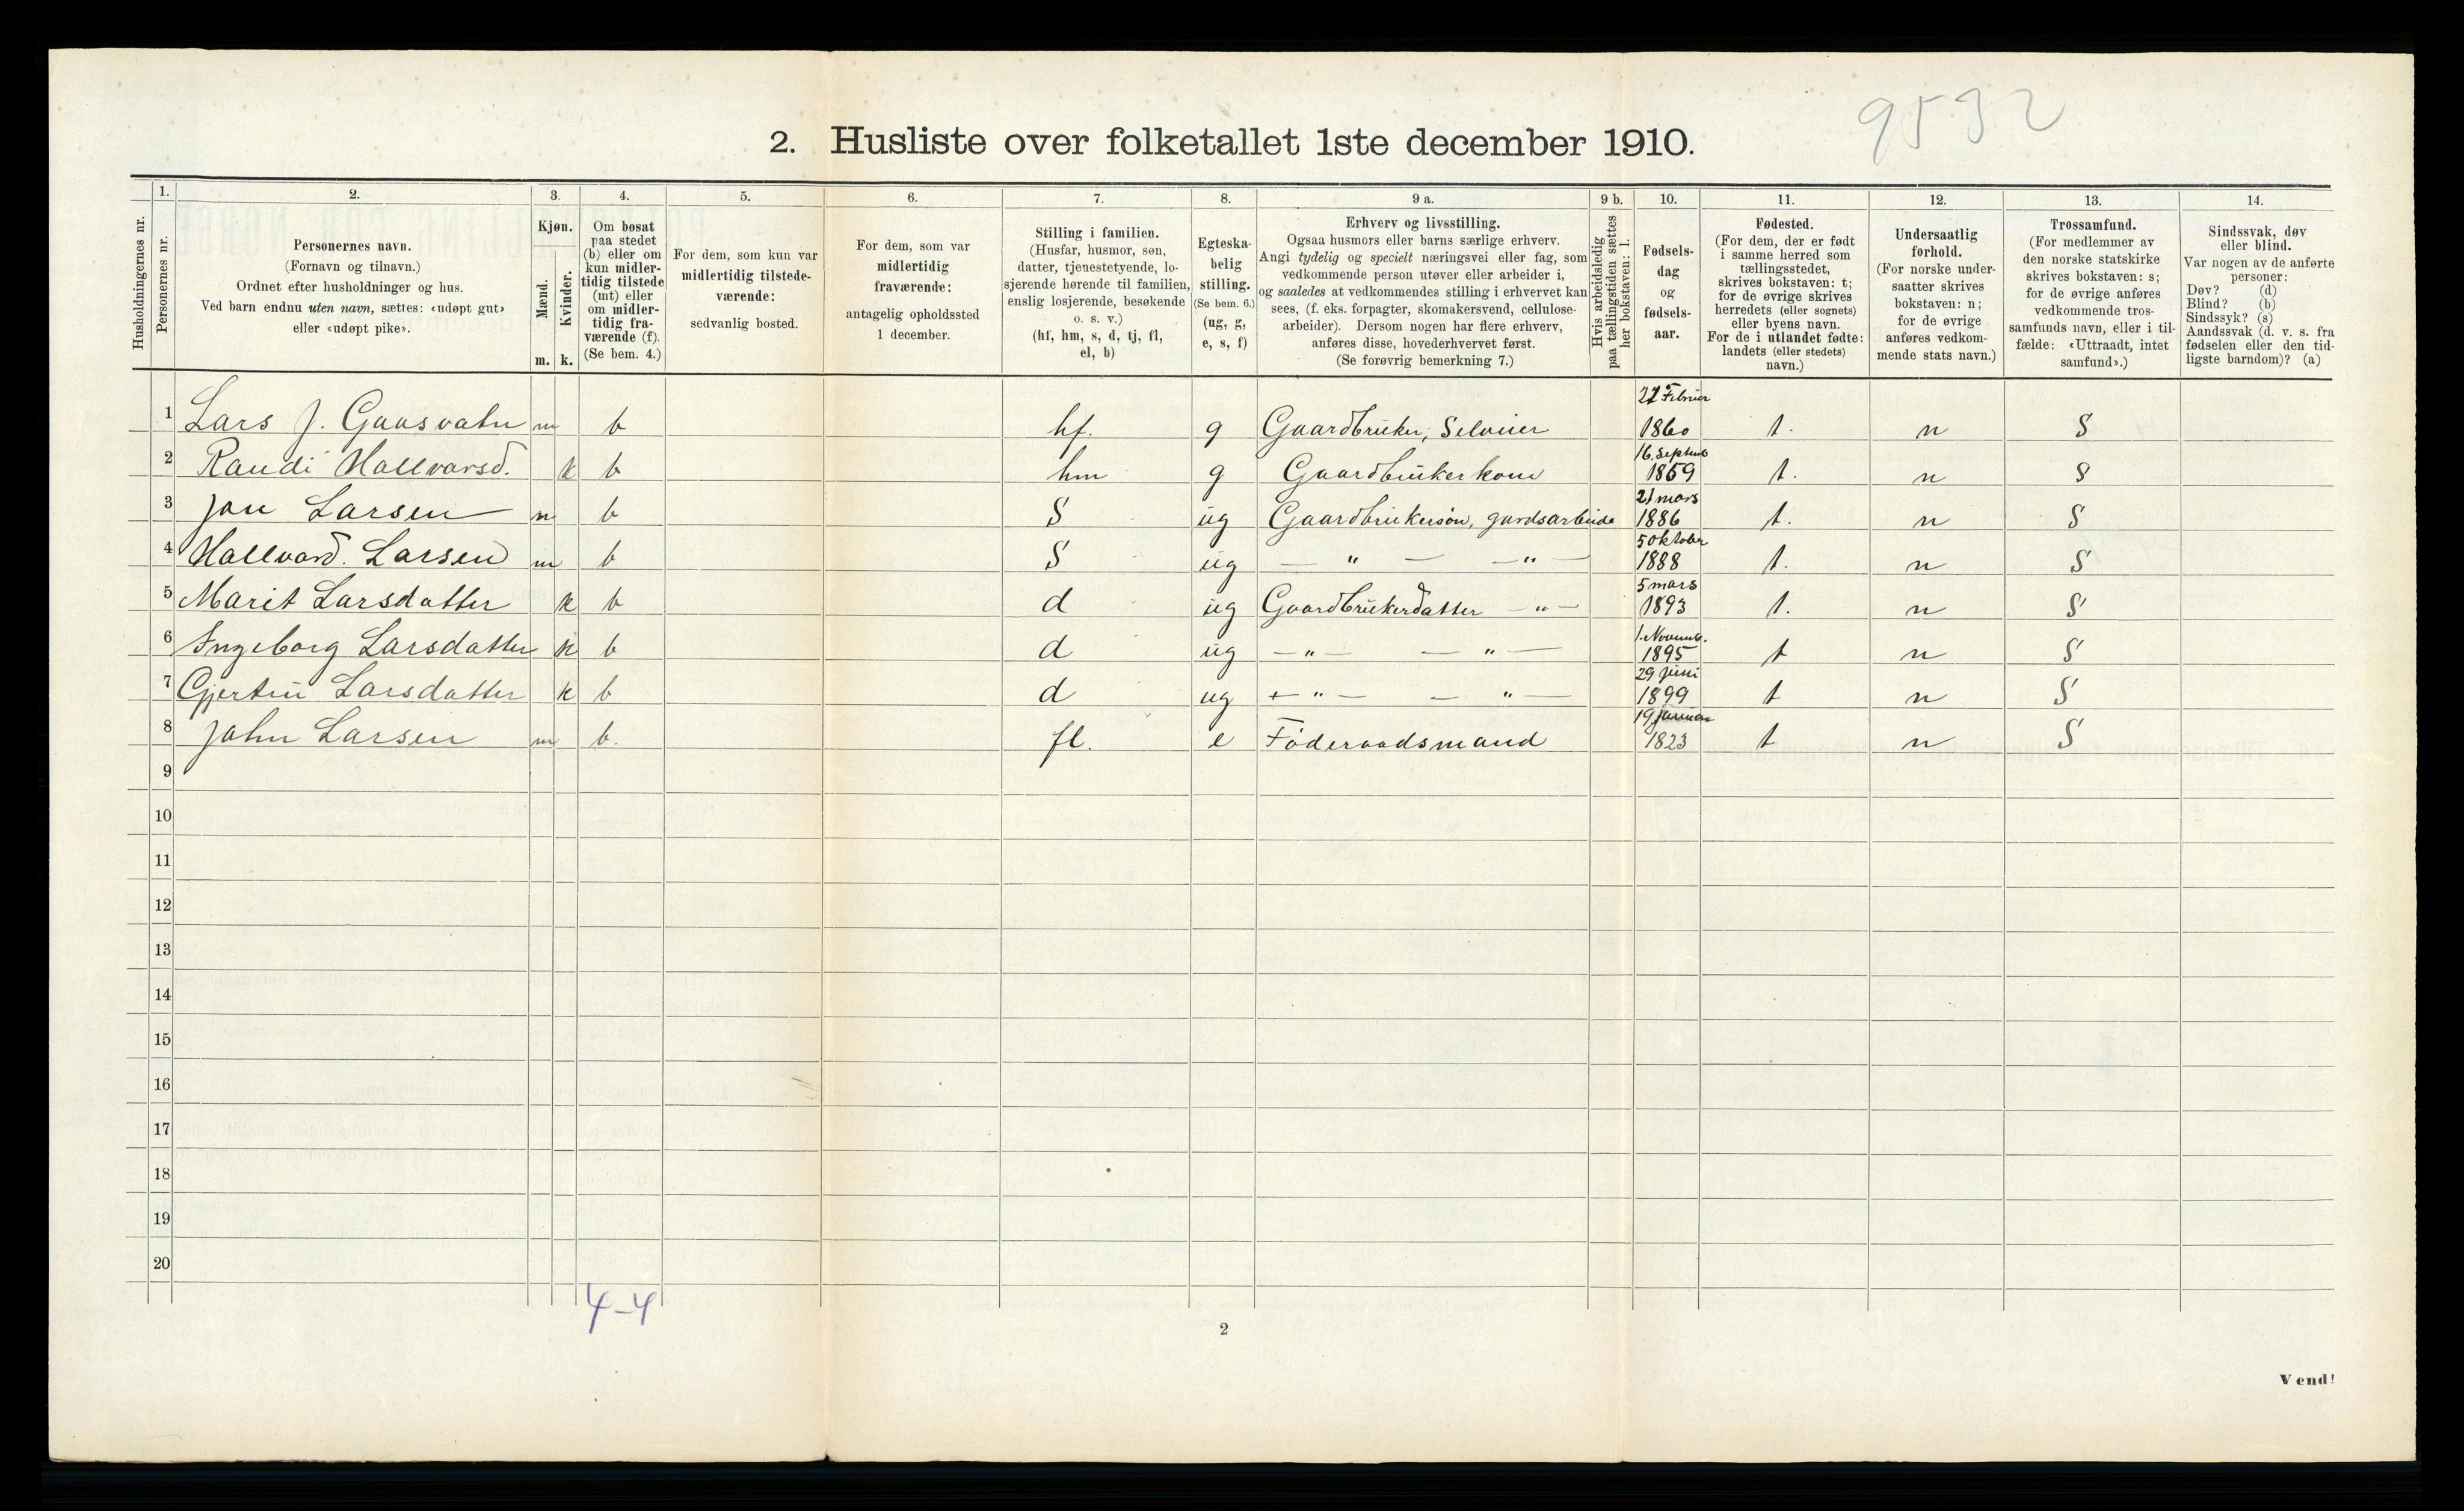 9532
2. Husliste over folketallet 1ste december 1910.
Husholdningernes nr.
1. Personernes nr.
2. Personernes navn. (Fornavn og tilnavn.) Ordnet efter husholdninger og hus. Ved barn endnu uten navn, sættes: «udøpt gut» eller «udøpt pike».
3. Kjøn. Mænd. m. Kvinder. k.
4. Om bosat paa stedet (b) eller om kun midlertidig tilstede (mt) eller om midlertidig fraværende (f). (Se bem. 4.)
5. For dem, som kun var midlertidig tilstedeværende: sedvanlig bosted.
6. For dem, som var midlertidig fraværende: antagelig opholdssted 1 december.
7. Stilling i familien. (Husfar, husmor, søn, datter, tjenestetyende, losjerende hørende til familien, enslig losjerende, besøkende o. s. v.) (hf, hm, s, d, tj, fl, el, b)
8. Egteskabelig stilling. (Se bem. 6.) (ug, g, e, s, f)
9 a. Erhverv og livsstilling. Ogsaa husmors eller barns særlige erhverv. Angi tydelig og specielt næringsvei eller fag, som vedkommende person utøver eller arbeider i, og saaledes at vedkommendes stilling i erhvervet kan sees, (f. eks. forpagter, skomakersvend, cellulosearbeider). Dersom nogen har flere erhverv, anføres disse, hovederhvervet først. (Se forøvrig bemerkning 7.)
9 b. Hvis arbeidsledig paa tællingstiden sættes her bokstaven: l.
10. Fødselsdag og fødselsaar.
11. Fødested. (For dem, der er født i samme herred som tællingsstedet, skrives bokstaven: t; for de øvrige skrives herredets (eller sognets) eller byens navn. For de i utlandet fødte: landets (eller stedets) navn.)
12. Undersaatlig forhold. (For norske undersaatter skrives bokstaven: n; for de øvrige anføres vedkommende stats navn.)
13. Trossamfund. (For medlemmer av den norske statskirke skrives bokstaven: s; for de øvrige anføres vedkommende trossamfunds navn, eller i tilfælde: «Uttraadt, intet samfund».)
14. Sindssvak, døv eller blind. Var nogen av de anførte personer: Døv? (d) Blind? (b) Sindssyk? (s) Aandssvak (d. v. s. fra fødselen eller den tidligste barndom)? (a)
1 Lars J. Gaasvatn m b hf. g Gaardbruker, Selveier Februar 1860 t. n S
2 Randi Hallvarsd. k b hm g Gaardbrukerkone 16. Septemb 1859 t. n S
3 Jon Larsen m b S ug Gaardbrukersøn, gardsarbeide 21 mars 1886 t. n S
4 Hallvard. Larsen m b S ug — " — — " — 5 oktober 1888 t. n S
5 Marit Larsdatter k b d ug Gaardbrukerdatter — " — 5 mars 1893 t. n S
6 Ingeborg Larsdatter k b d ug — " — — " — 1. Novemb. 1895 t n S
7 Gjertru Larsdatter k b d ug — " — — " — 29 juni 1899 t n S
8 John Larsen m b. fl. e Föderaadsmand 19 januar 1823 t n S
9
10
11
12
13
14
15
16
17
18
19
20
4-4
2
Vend!